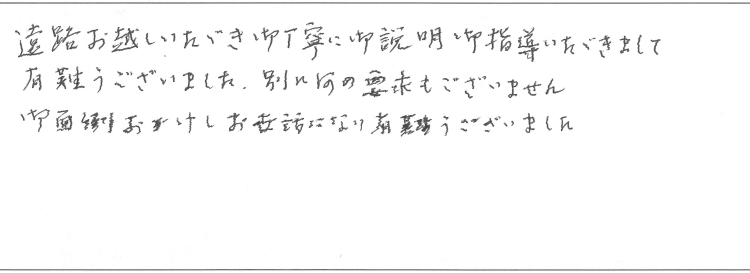 遠路お越しいただき御丁寧に御説明御指導いただきまして
有難うございました。別に何の要求もございません
御面倒おかけしお世話になり有難うございました